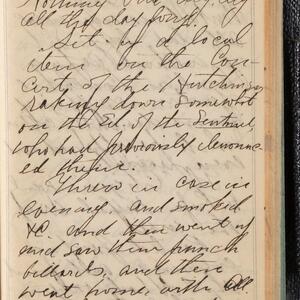 Nothing
all the day
Set up a local
item on the con-
certs of the Hutchinsons
raking down somewhat
on the Ed. of the Sentinel
who had previously denounc-
ed them.
Threw in case in
evening, and smoked
&c. and then went up
and saw them punch
billiards, and then
went home with